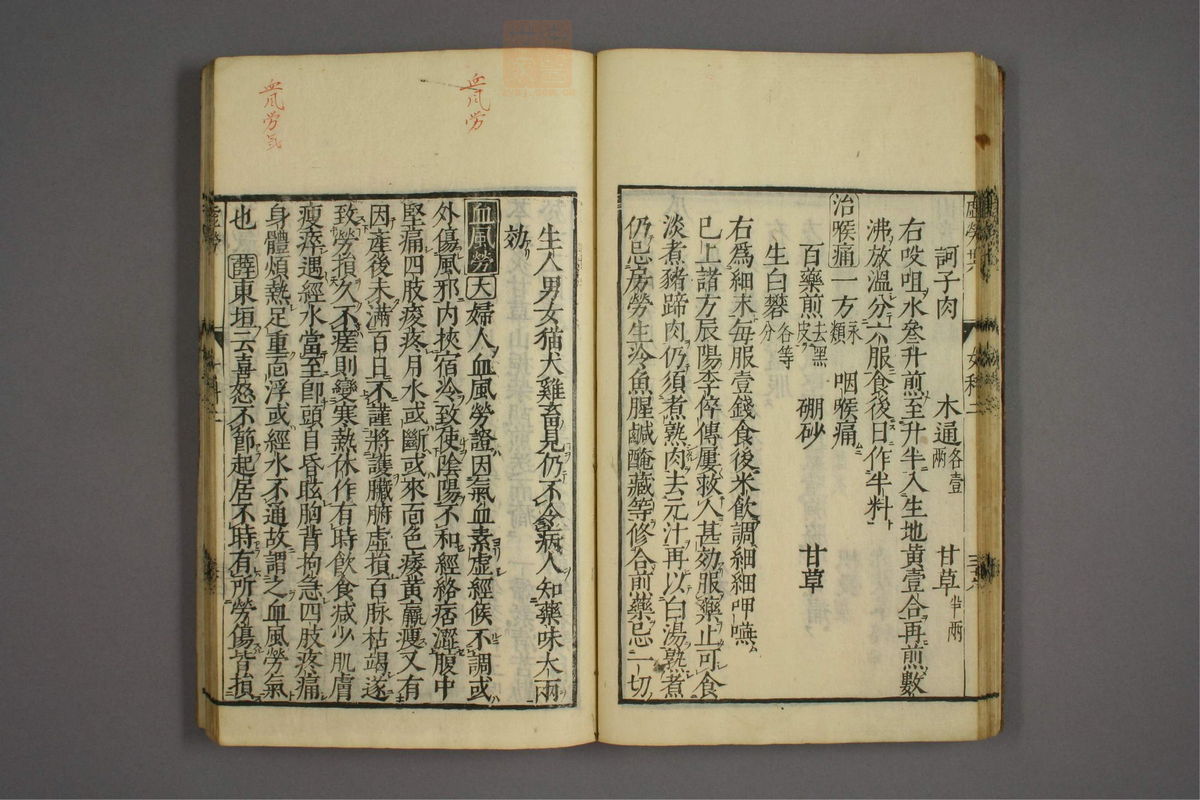 訶子肉 木通各壹兩 甘草半兩
右㕮咀水叄升煎至升半入生地黃壹合再煎數
沸放溫分六服食後日作半料
治喉痛一方永類 咽喉痛
百藥煎去黑皮 硼砂 甘草
生白礬各等分
右爲細末每服壹錢食後米飲調細細呷嚥
已上諸方辰陽李倅傳屢救人甚効服藥止可食
淡煮豬蹄肉仍須煮熟肉去元汁再以白湯熟煮
仍忌房勞生冷魚腥鹹醃藏等修合前藥忌一切
生人男女猫犬雞畜見仍不令病人知藥味大兩
効
血風勞 大 婦人血風勞證因氣血素虛經候不調或
外傷風邪内挾宿冷致使陰陽不和經絡痞澀腹中
堅痛四肢痠疼月水或斷或來面色痿黃羸瘦又有
因產後未滿百日不謹將護臟腑虛損百脉枯竭遂
致勞損久不瘥則變寒熱休作有時飲食減少肌膚
瘦瘁遇經水當至卽頭目昏眩胸背拘急四肢疼痛
身體煩熱足重面浮或經水不通故謂之血風勞氣
也 薛 東垣云喜怒不節起居不時有所勞傷皆損
血風勞
血風勞氣
女科二